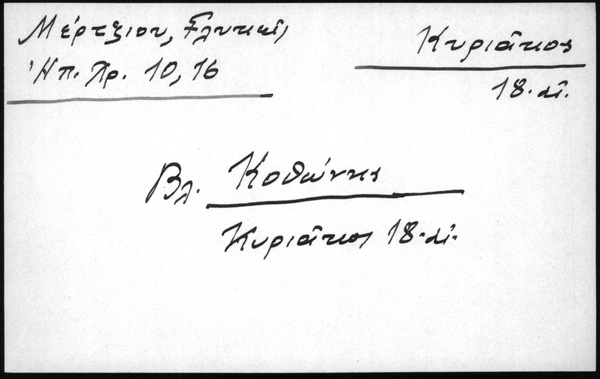 Μέρτζιου, Γλυκεῖς
Ἠπ. Χρ. 10, 16
Κυριᾶκος
18. αἰ.
Βλ. Κοθώνης
Κυριᾶκος 18. αἰ.